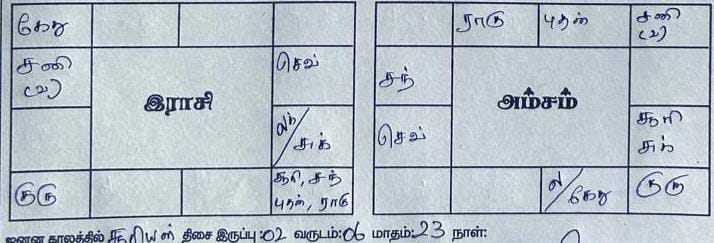 கேது
ராகு புதன் சனி (வ)
சனி (வ) செவ் சந்
இராசி அம்சம்
ல/ சுக் செவ் சூரி சுக்
குரு சூரி, சந் புதன், ராகு ல/கேது குரு
ஜனன காலத்தில் சூரியன் திசை இருப்பு: 02 வருடம்: 06 மாதம்: 23 நாள்: